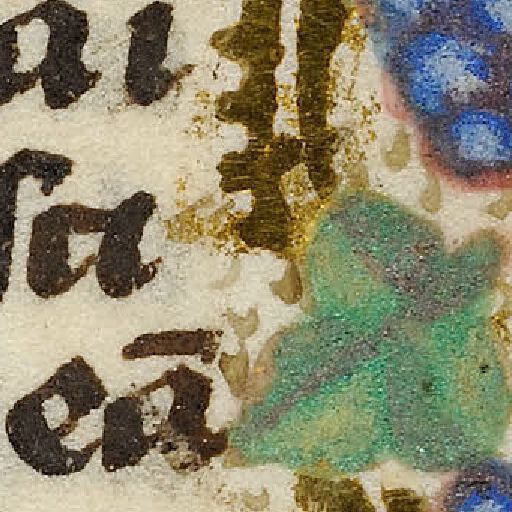 ai
ſa
eā